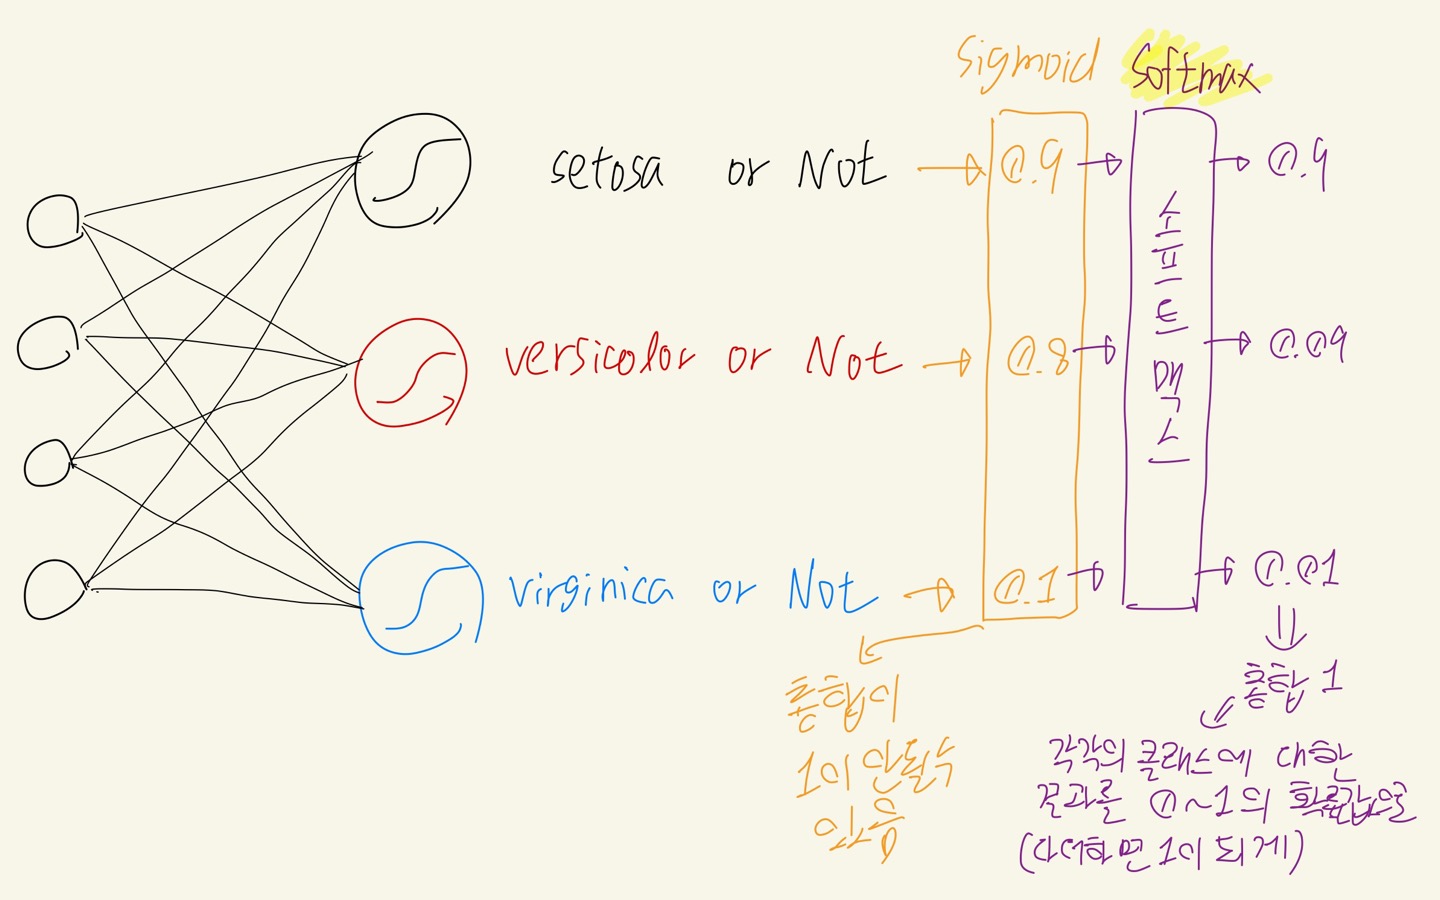 Sigmoid Softmax
setosa or Not 0.9 0.9
versicolor or Not 0.8 0.09
virginica or Not 0.1 0.01
소프트맥스
총합이
1이 안될수
있음
총합 1
각각의 클래스에 대한
결과를 0~1의 확률값으로
(다더하면 1이 되게)